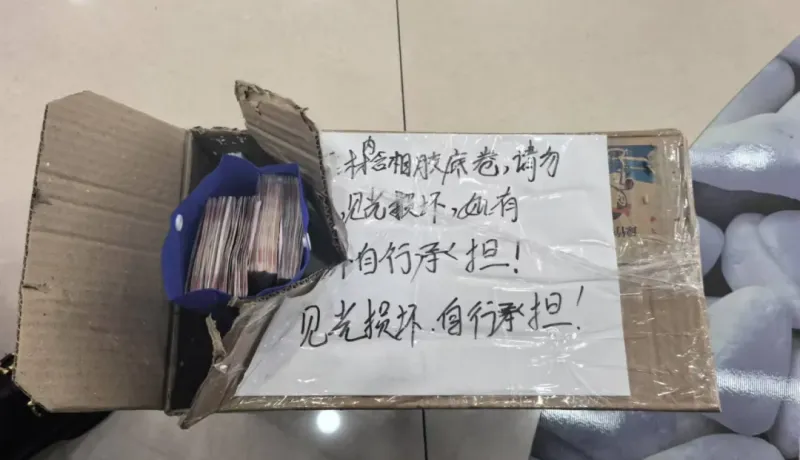 内含相胶底卷,请勿
见光损坏,如有
自行承担!
见光损坏.自行承担!